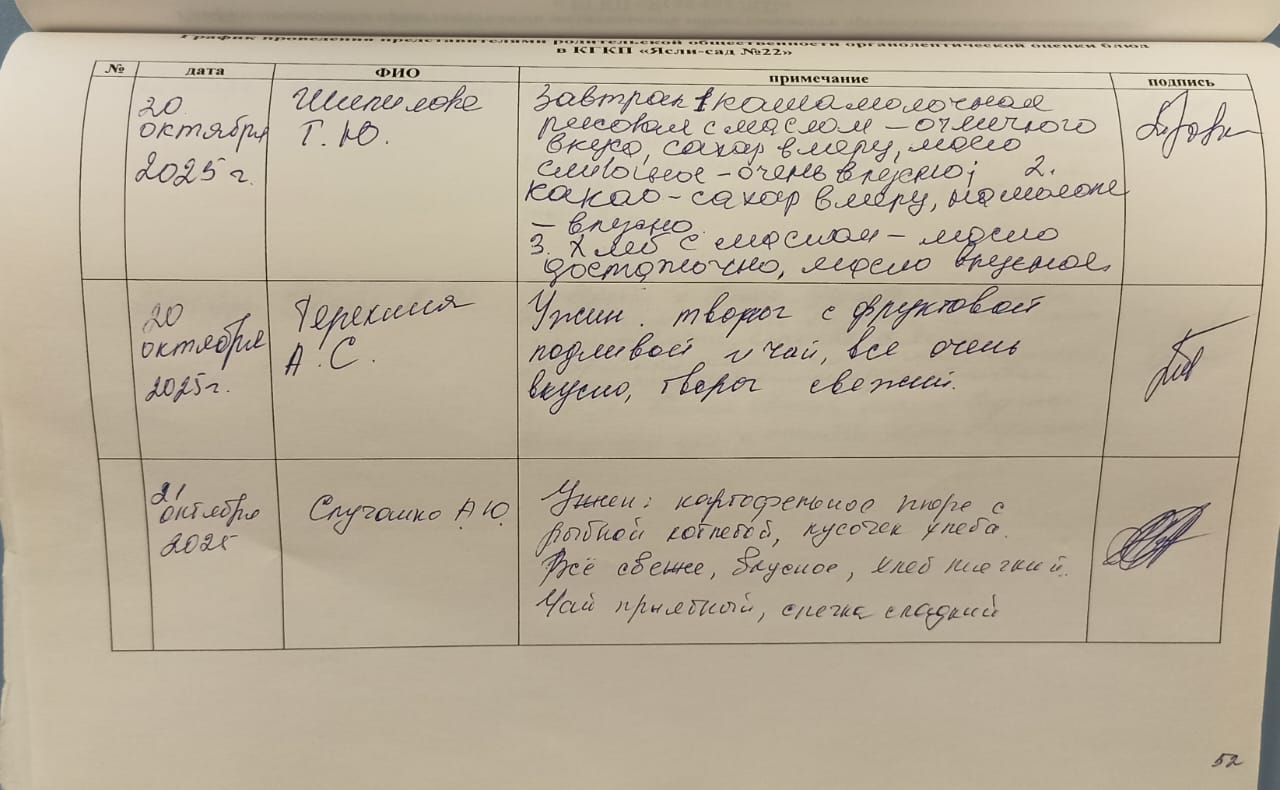 График проведения представителями родительской общественности органолептической оценки блюд
в КГКП «Ясли-сад №22»
№ дата ФИО примечание подпись
20 октября 2025 г.
Шипилова
Т. Ю.
Завтрак 1 каша молочная
рисовая с маслом – отличного
вкуса, сахар в меру, масло
сливочное – очень вкусно; 2.
какао – сахар в меру, на молоке
– вкусно.
3. Хлеб с маслом – масло
достаточно, масло вкусное.
20
октября
2025г.
А. С.
Ужин. творог с фруктовой
подливой и чай, все очень
вкусно, творог свежий.
21
октября
2025
А.Ю.
Ужин: картофельное пюре с
рыбной котлетой, кусочек хлеба.
Всё свежее, вкусное, хлеб мягкий.
Чай приятный, слегка сладкий
52